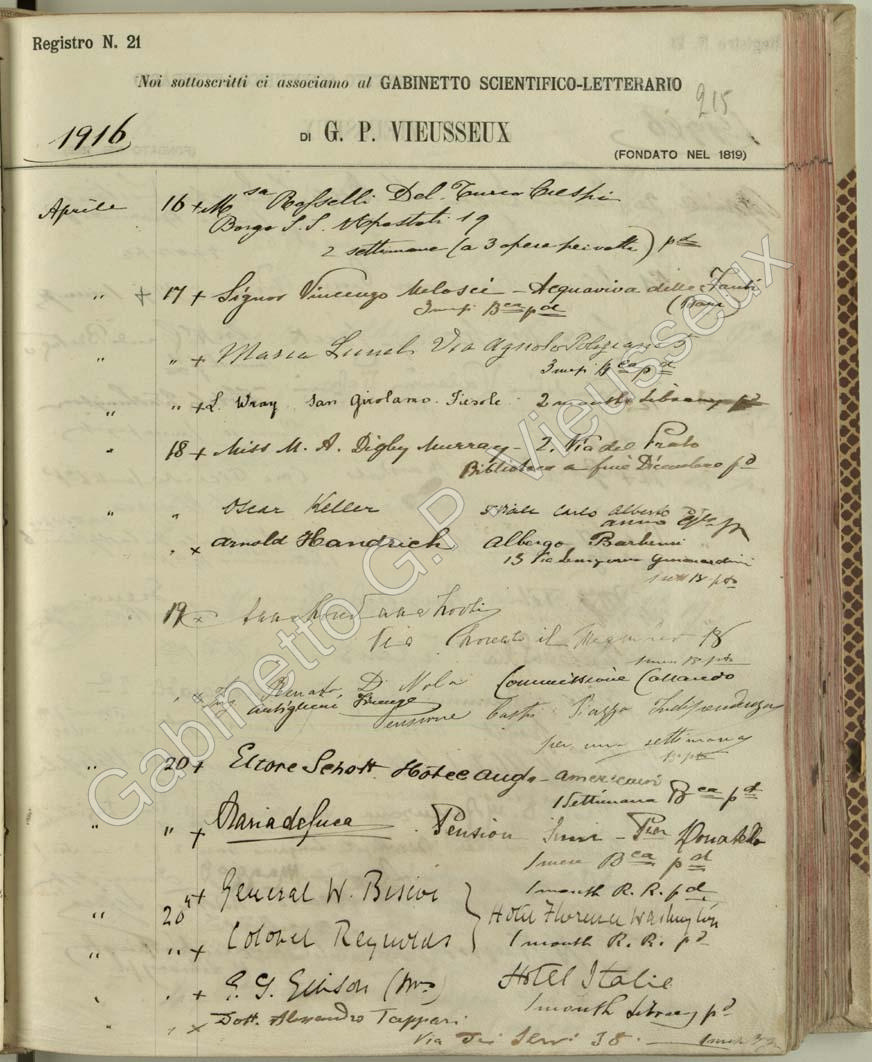 Registro N. 21
Noi sottoscritti ci associamo al GABINETTO SCIENTIFICO-LETTERARIO
215
1916
DI G. P. VIEUSSEUX
(FONDATO NEL 1819)
Aprile 16 + M.sa Rosselli Del Turco Crespi
Borgo S.S. Apostoli 19
2 settimane (a 3 opere per volta) pd
" + 17 + Signor Vincenzo Melosci - Acquaviva delle Fonti
3 mesi Bca pd (Bari)
" " + Maria Lunel Via Agnolo Poliziano 5
3 mesi Bca pd
" " + L. Wray San Girolamo Fiesole 2 months Library pd
" 18 + Miss M. A. Digby Murray - 2. Via del Prato
Biblioteca a fine Dicembre pd
" " Oscar Keller Viale Carlo Alberto
anno
" × Arnold Handrich Albergo Barbensi
13 Via Guicciardini
19 ×
Via 18
" × Renato Di Nola Commissione Collaudo
Artiglieri Firenze
Pensione Piazza Indipendenza
per una settimana
" 20 + Ettore Schott Hôtel Anglo-Americani
1 Settimana Bca pd
" " + Maria de Luca Pension Piazza Donatello
1 mese Bca pd
" 20 " + General W. 1 month R. R. pd
Hotel Florence Washington
" " + Colonel Reynolds 1 month R. R. pd
" " + G. G. Ellison (Mrs) Hotel Italie
1 month Library pd
" × Dott. Alessandro Tappari
Via dei Servi 38
Gabinetto G.P. Vieusseux